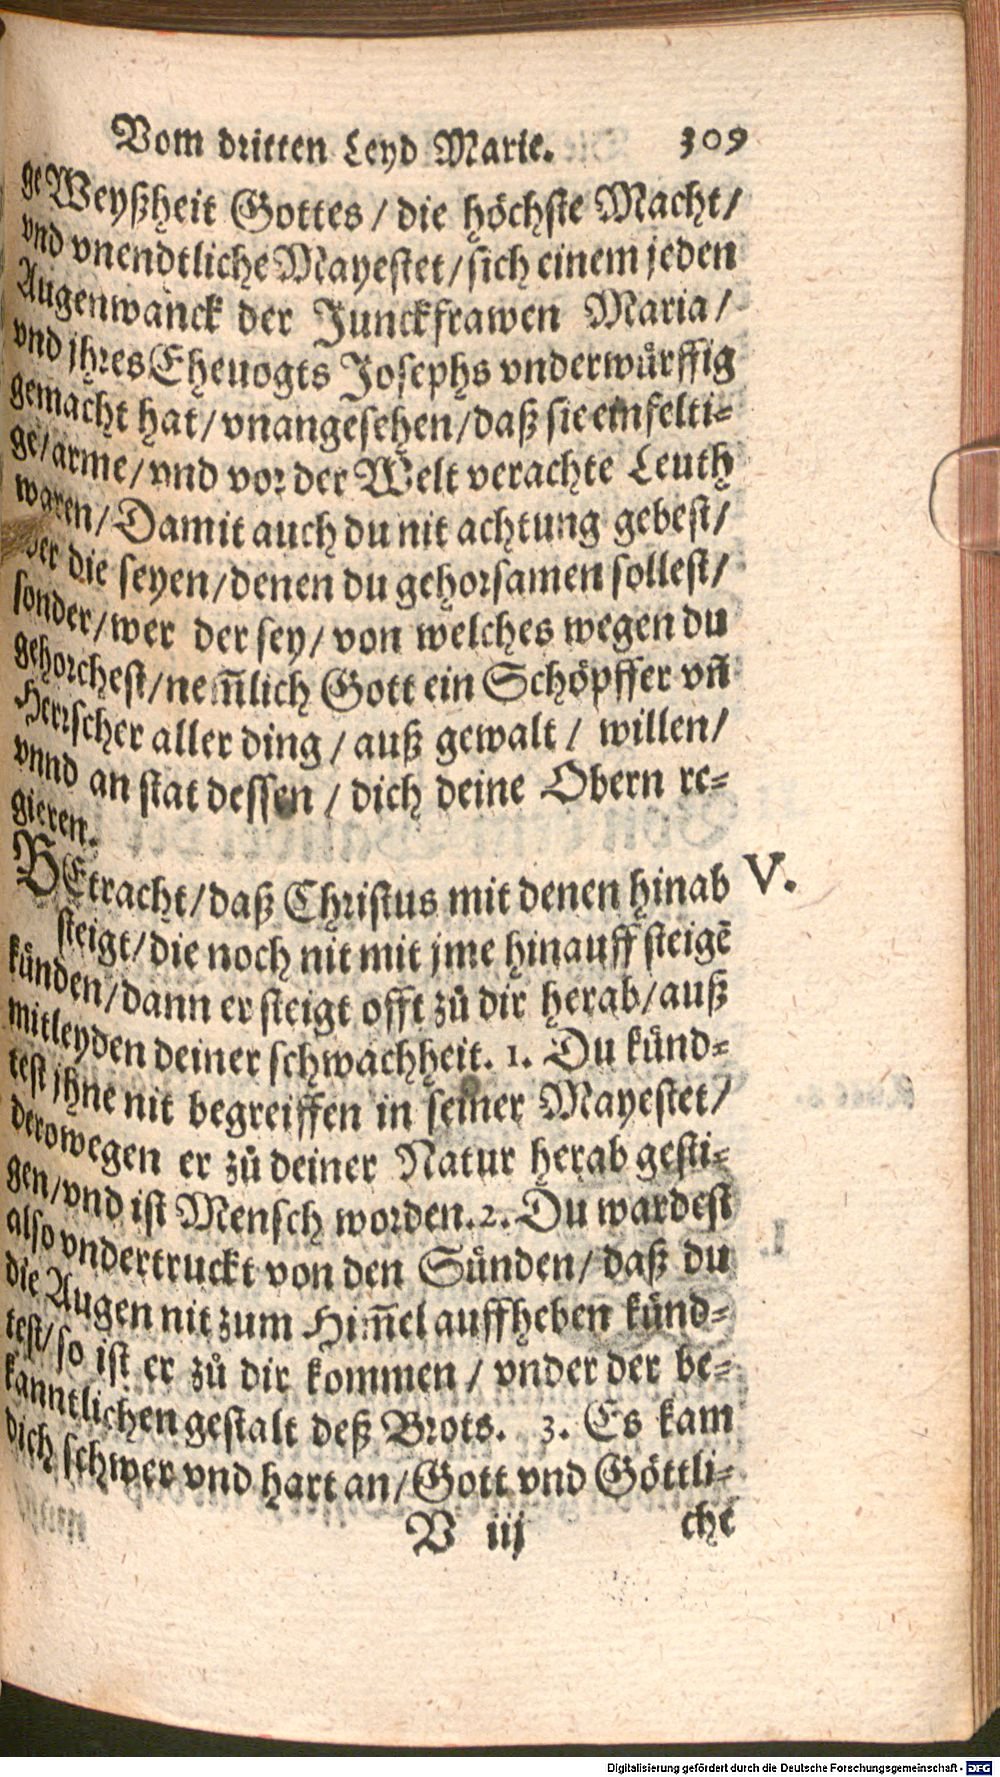 Vom dritten Leyd Marie. 309
ge Weyßheit Gottes / die höchste Macht /
vnd vnendtliche Mayestet / sich einem jeden
Augenwanck der Junckfrawen Maria /
vnd jhres Eheuogts Josephs vnderwürffig
gemacht hat / vnangesehen / daß sie einfelti-
ge / arme / vnd vor der Welt verachte Leuth
waren / Damit auch du nit achtung gebest /
wer die seyen / denen du gehorsamen sollest /
sonder / wer der sey / von welches wegen du
gehorchest / nem̃lich Gott ein Schöpffer vñ
Herrscher aller ding / auß gewalt / willen /
vnnd an stat dessen / dich deine Obern re-
gieren.
BEtracht / daß Christus mit denen hinab V.
steigt / die noch nit mit jme hinauff steigẽ
künden / dann er steigt offt zů dir herab / auß
mitleyden deiner schwachheit. 1. Du künd-
test jhne nit begreiffen in seiner Mayestet /
derowegen er zů deiner Natur herab gesti-
gen / vnd ist Mensch worden. 2. Du wardest
also vndertruckt von den Sünden / daß du
die Augen nit zum Him̃el auffheben künd-
test / so ist er zů dir kommen / vnder der be-
kanntlichen gestalt deß Brots. 3. Es kam
dich schwer vnd hart an / Gott vnd Göttli-
V iij che
Digitalisierung gefördert durch die Deutsche Forschungsgemeinschaft - DFG